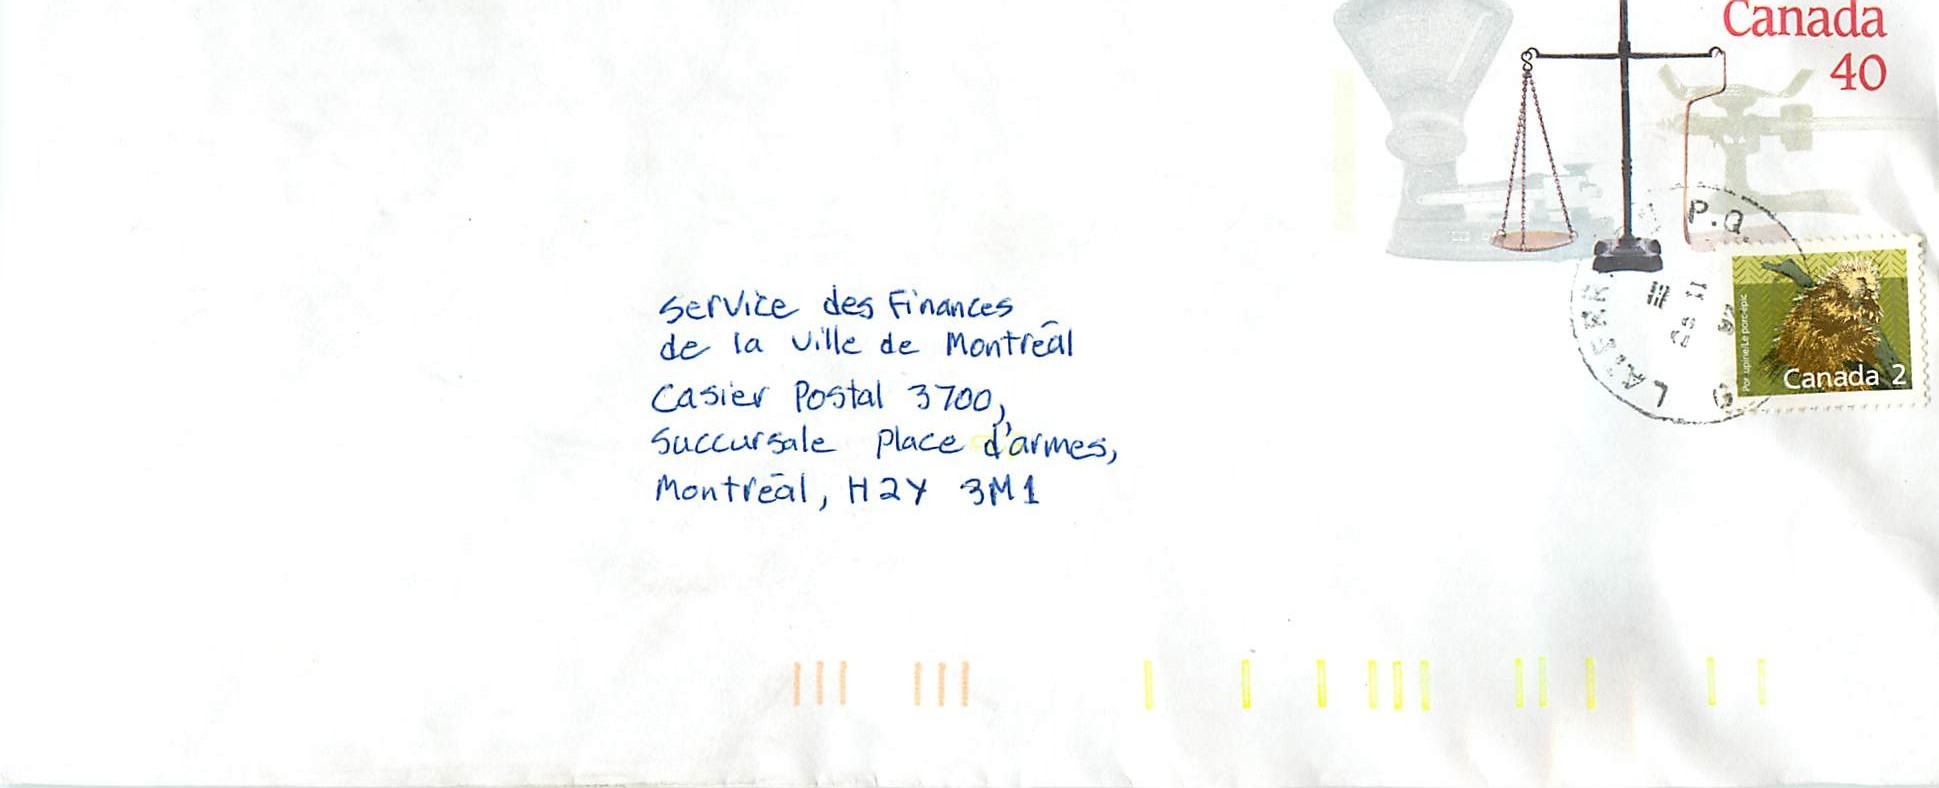 Canada
40
P.Q.
Porcupine/Le porc-épic
Canada 2
Service des Finances
de la Ville de Montréal
Casier Postal 3700,
Succursale Place d'armes,
Montréal, H2Y 3M1